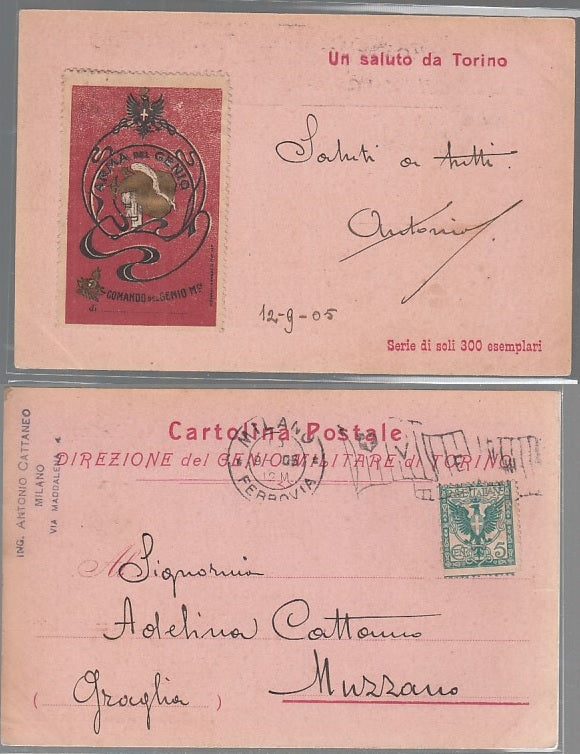 Un saluto da Torino
ARMA DEL GENIO
COMANDO DEL GENIO
di
Saluti a tutti.
Antonio
12-9-05
Serie di soli 300 esemplari
ING. ANTONIO CATTANEO
MILANO
VIA MADDALENA
Cartolina Postale
DIREZIONE del GENIO MILITARE di TORINO
MILANO
05
12 M
FERROVIA
POSTE ITALIANE
CENT. 5
Al Signorina
Adelina Cattaneo
(Graglia) Muzzano